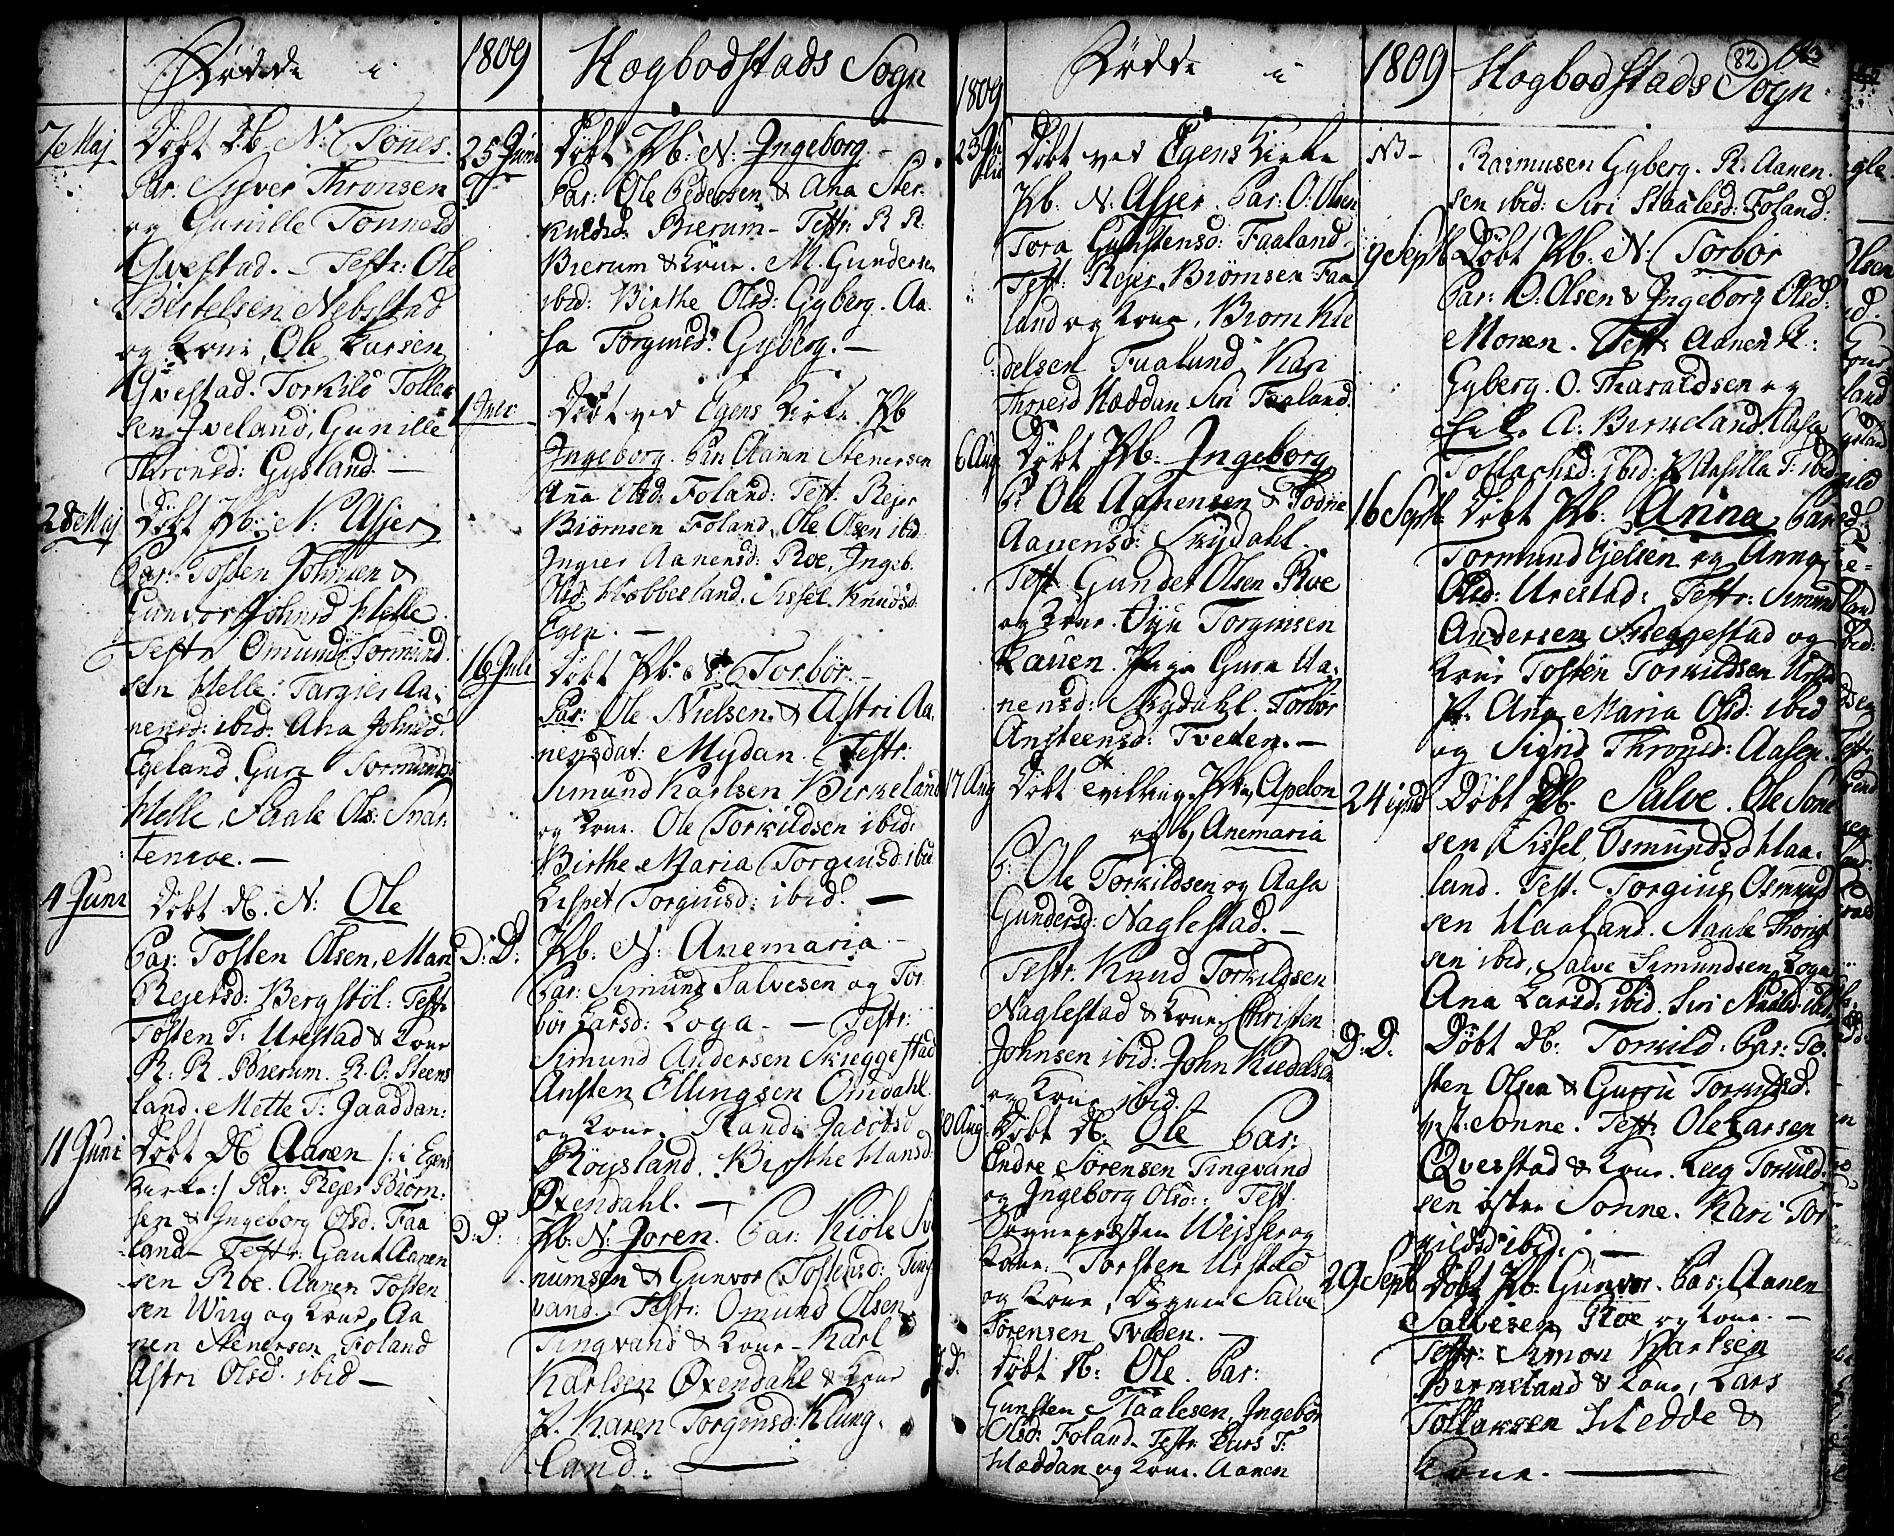 Fødde i 1809 Hægbodstads Sogn
7de Maj Døbt Db. N: Tønnes.
Par. Siver Thronsen
og Gunille Tønnesd
Qvestad. - Testr: Ole
Bertelsen Nebstad
og Kone, Ole Larsen
Qvestad. Torkild Tollac
sen Jveland, Gunille
Thronsd: Gysland. -
28 Maj Døbt Pb: N: Asjer
Par: Tosten Johnsen &
Gunvor Johnsd Helle
Testr Omund Tormund
sen Helle: Targier Aa-
nensd: ibid. Ana Johnsd.
Egeland. Guro Tormunds
Helle, Staale Ols: Snar
temoe. -
4 Juni Døbt Db. N: Ole
Par: Tosten Olsen, Mari
Rejersd: Bergstøl: Testr
Tosten T: Urestad & Kone
R. R. Bierum. R. O: Steens
land. Mette T: Jaaddan:
11 Juni Døbt Db Aanen /: i Egens
Kirke :/ Par: Rejer Biørn-
sen & Ingeborg Olsd: Faa
land - Testr: Gaut Aanen
sen Roe. Aanen Tosten
sen Wiig og Kone, Aa
nen Stenersen Foland
Astri Olsd. ibid -
25 Juni Døbt Pb: N: Ingeborg. -
Par: Ole Pedersen & Ana Ster
kuldsd: Bierum - Testr: R R:
Bierum & Kone. M. Gundersen
ibid: Birthe Olsd: Gyberg. Aa-
sa Torgiusd: Gyberg. -
1 Julii Døbt ved Egens Kirke Pb
Ingeborg. Par Aanen Stenersen
Ana Olsd: Foland: Test: Rejer
Biørnsen Foland, Ole Olsen ibid
Ingier Aanensd: Roe, Ingeb.
Olsd. Hobbesland. Sissel Knudsd:
Egen. -
16 Juli Døbt Pb: N: Torbør. -
Par: Ole Nielsen & Astri Aa.
nensdat: Mydan. Testr:
Simund Karlsen Birkeland
og Kone. Ole Torkildsen ibid:
Birthe Maria Torgiusd: ibid
Lispet Torgiusd: ibid. -
D: D. Pb: N: Anemaria. -
Par: Simund Salvesen og Tor
bør Larsd: Loga. - Testr:
Simund Andersen Skieggestad
Ansten Ellingsen Omdahl.
og Kone. Randi Jacobsd
Röysland. Birthe Hansd:
Øxendahl. -
D: D: Pb: N: Joren. Par: Kiøle Sv
numsen & Gunvor Tostensd: Ting
vand. Testr: Omund Olsen
Tingvand & Kone - Karl
Karlsen Øxendahl & Kone
P. Karen Torgiusd: Klung-
land. -
1809 Fødde i 1809 Hægbodstads Sogn 82
23 Ju
lii Døbt ved Egens Kirke
Pb. N: Asjer. Par: O: Olsen
Tora Gunstensd: Faaland.
Test: Rejer Biørnsen Faa
land og Kone, Biørn Kie
delsen Faaland Kari
Thoresd Hæddan Siri Faaland.
6 Aug Døbt Pb. Ingeborg
P: Ole Aanensen & Todne
Aanensd: Skydahl.
Test: Gunder Olsen Roe
og Kone. Torgiusen
Lauen. Pige Guro Aa-
nensd: Skydahl. Torbør
Ansteensd: Tveden. -
17 Aug Døbt Tvilling Pb Apelon
og Anemaria
P: Ole Torkildsen og Aasa
Gundersd: Naglestad. -
Testr. Knud Torkildsen
Naglestad & Kone. Christen
Johnsen ibid: John Kiedelsen
og Kone ibid:
Aug Døbt Db: Ole Par:
Endre Sørensen Tingvand
og Ingeborg Olsd: Test:
Sognepræsten Weisse og
Kone. Torsten Urstad
og Kone, Salve
Sørensen Tveden. -
D: Døbt Db: Ole. Par:
Gunsten Staalesen, Ingebør
Olsd: Foland. Testr Lars T:
Hæddan og Kone. Aanen
Rasmusen Gyberg. R. Aanen
sen ibid: Siri Staalesd: Foland:
9 Septb Døbt Pb: N: Torbør
Par: O: Olsen & Ingeborg Olsd:
Monen. Test: Aanen R:
Gyberg. O. Tharaldsen og
A: Birkeland, Aasa
Tollachsd: ibid: P Aasilla T: ibid
16 Septb Døbt Pb: Anna. Par
Tormund Ejelsen og Anna
Olsd: Urestad: Testr: Simund
Andersen Skieggestad og
Kone Tosten Torkildsen Urstad
P. Ana Maria Olsd: ibid
og Sigrid Thronsd: Aasen.
24 ejusd Døbt Db. Salve. Ole Sone
sen Sissel Osmundsd Haa-
land. Test. Torgius Osmund
sen Haaland. Aanen Thorist
sen ibid, Salve Simundsen Loga
Ana Larsd: ibid. Siri
D: D. Døbt Db: Torkild. Par: To.
sten Olsen & Gurru Torkildsd.
yst: Sonne. Testr: Ole Larsen
Qverstad & Kone. Leeg Torkild
sen østre Sonne. Kari Tor
kildsd ibid. -
29 Septb Døbt Pb. Gunvor. Par: Aanen
Salvesen Roe og Kone. -
Testr: Simon Karlsen
Birkeland & Kone, Lars
Tollaksen Hedde &
Kone. -